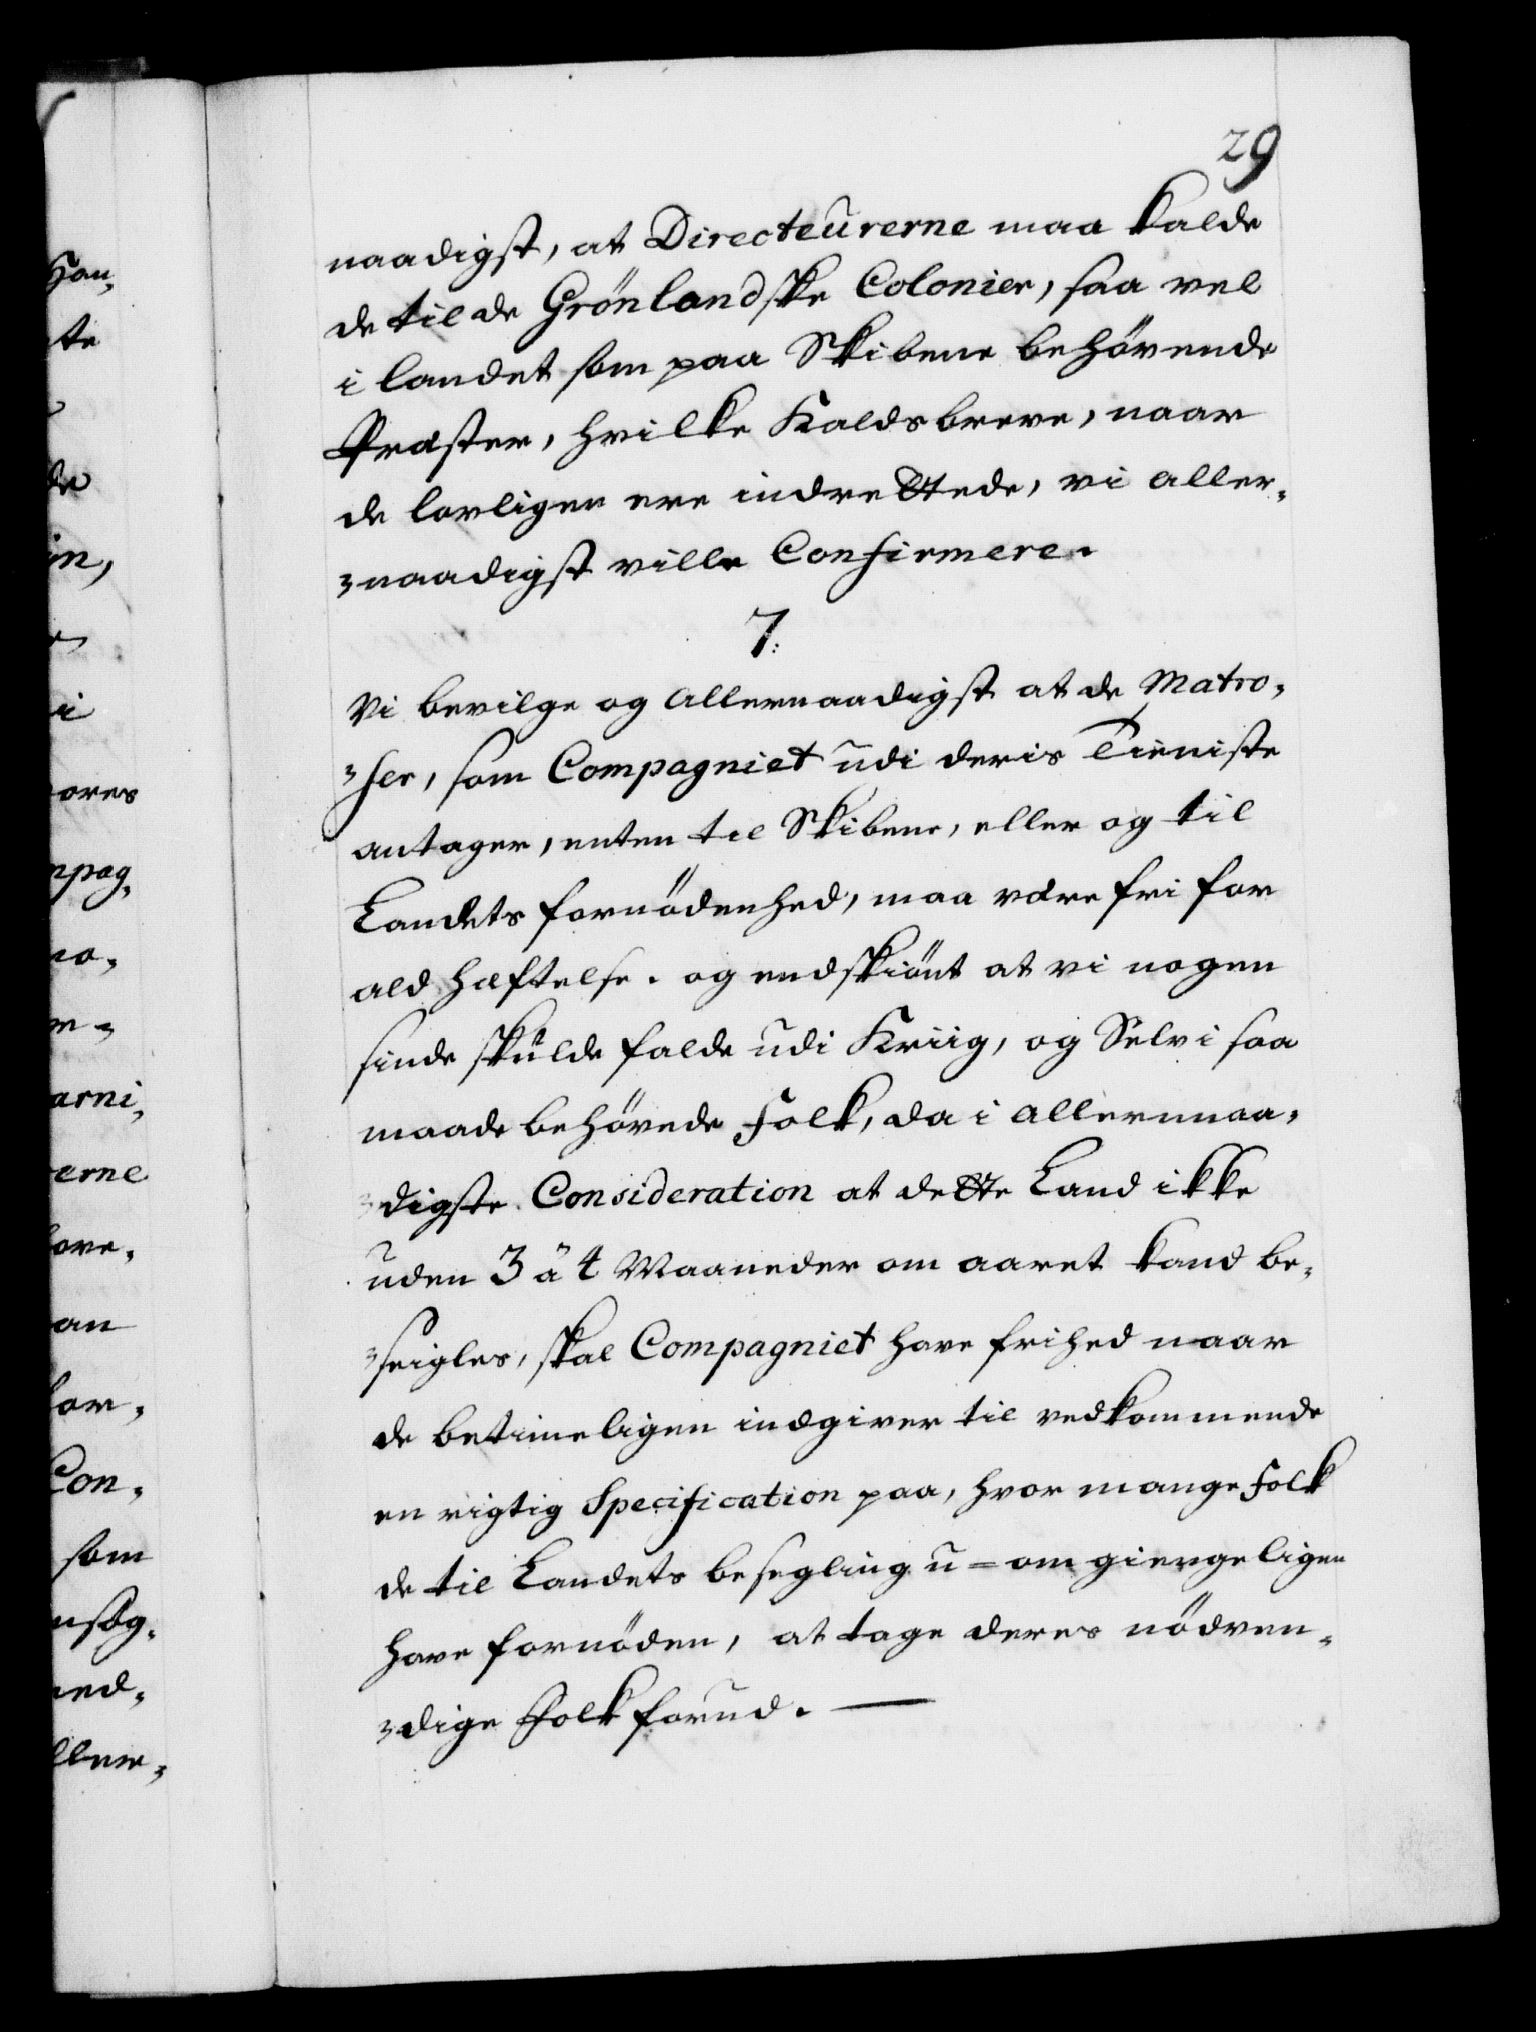 29
naadigst, at Directeurerne maa kalde
de til de Grönlandske Colonier, saa vel
i landet som paa Skibene behövende
Præster, hvilke Kaldsbreve, naar
de lovligen ere indrettede, vi aller-
naadigst ville Confirmere.
7:
Vi bevilge og allernaadigst at de Matro-
ser, som Compagniet udi deris Tieniste
antager, enten til Skibene, eller og til
Landets fornödenhed, maa være fri for
ald hæftelse. og endskiönt at vi nogen
sinde skulde falde udi Kriig, og Selv i saa
maade behövede Folk, da i allernaa-
digste Consideration at dette Land ikke
uden 3 à 4 Maaneder om aaret kand be-
seigles, skal Compagniet have frihed naar
de betimeligen indgiver til vedkommende
en rigtig Specification paa, hvor mange Folk
de til Landets besegling u-omgiengeligen
have fornöden, at tage deres nödven-
dige Folk forud. —
Han-
te
de
in,
i
ores
mpag-
no-
arni-
erne
an
for-
Con-
som
nsög-
ned-
ller-